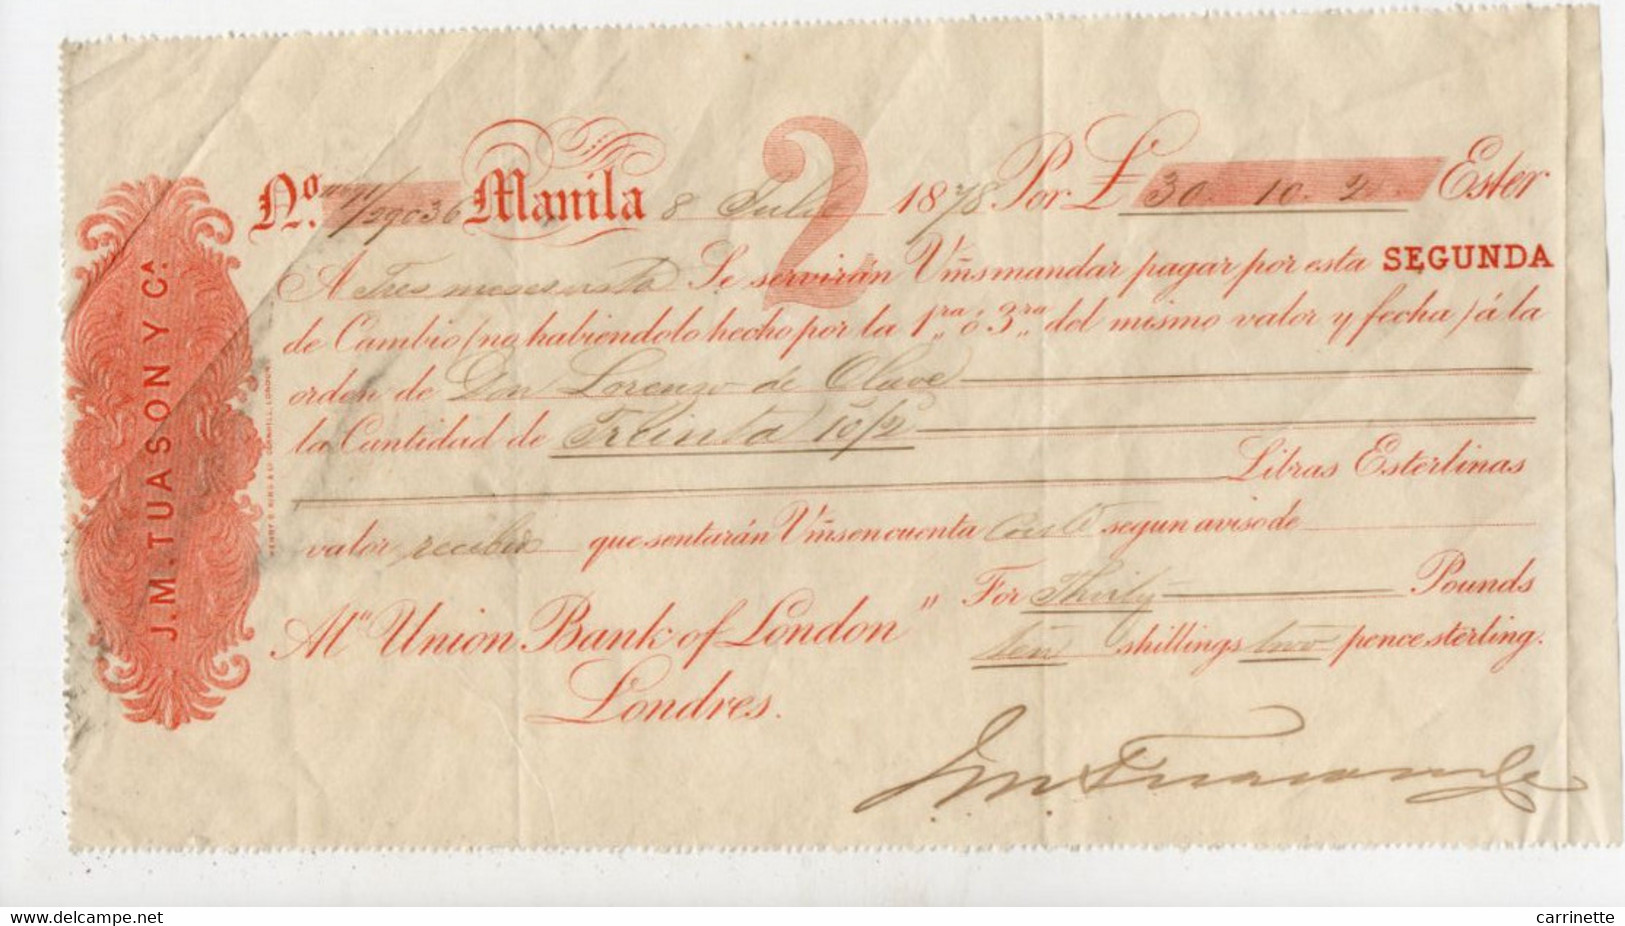 J. M. TUASON Y Cᴬ.
HENRY S. KING & Cº CORNHILL, LONDON
2
Nº. /29036 Manila 8 Julio 1878 Por £ 30. 10. 2 Ester
A Tres meses vista Se servirán Vm̃s mandar pagar por esta SEGUNDA
de Cambio (no habiendolo hecho por la 1ʳᵃ ó 3ʳᵃ del mismo valor y fecha) á la
orden de Don Lorenzo de Olave
la Cantidad de Treinta 10/2
Libras Esterlinas
valor recibido que sentarán Vm̃s en cuenta segun aviso de
Al Union Bank of London " For Thirty Pounds
ten shillings two pence sterling.
Londres.
J. M. Tuason y Cª
delcampe.net
carrinette